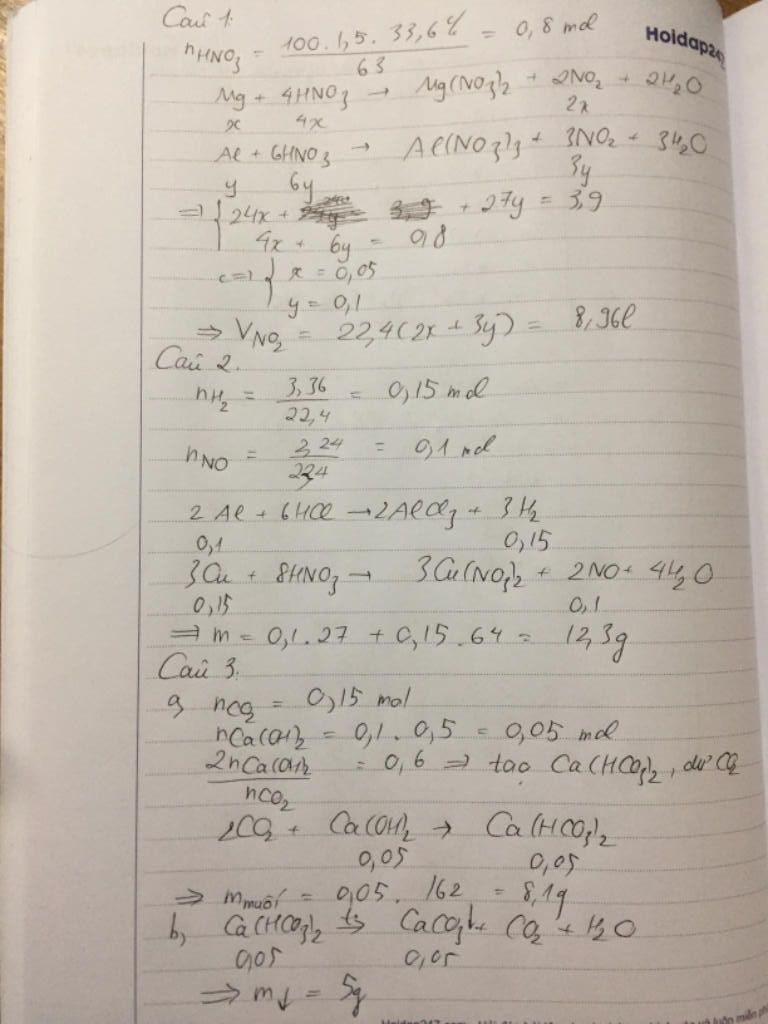 Câu 1.
Hoidap247
nHNO3 = 100.1,5.33,6% / 63 = 0,8 mol
Mg + 4HNO3 → Mg(NO3)2 + 2NO2 + 2H2O
x 4x 2x
Al + 6HNO3 → Al(NO3)3 + 3NO2 + 3H2O
y 6y 3y
=> { 24x + 27y = 3,9
4x + 6y = 0,8
<=> { x = 0,05
y = 0,1
=> VNO2 = 22,4(2x + 3y) = 8,96l
Câu 2.
nH2 = 3,36 / 22,4 = 0,15 mol
nNO = 2,24 / 22,4 = 0,1 mol
2Al + 6HCl → 2AlCl3 + 3H2
0,1 0,15
3Cu + 8HNO3 → 3Cu(NO3)2 + 2NO + 4H2O
0,15 0,1
=> m = 0,1.27 + 0,15.64 = 12,3g
Câu 3.
a, nCO2 = 0,15 mol
nCa(OH)2 = 0,1.0,5 = 0,05 mol
2nCa(OH)2 / nCO2 = 0,6 => tạo Ca(HCO3)2, dư CO2
2CO2 + Ca(OH)2 → Ca(HCO3)2
0,05 0,05
=> mmuối = 0,05.162 = 8,1g
b, Ca(HCO3)2 t°→ CaCO3↓ + CO2 + H2O
0,05 0,05
=> m↓ = 5g